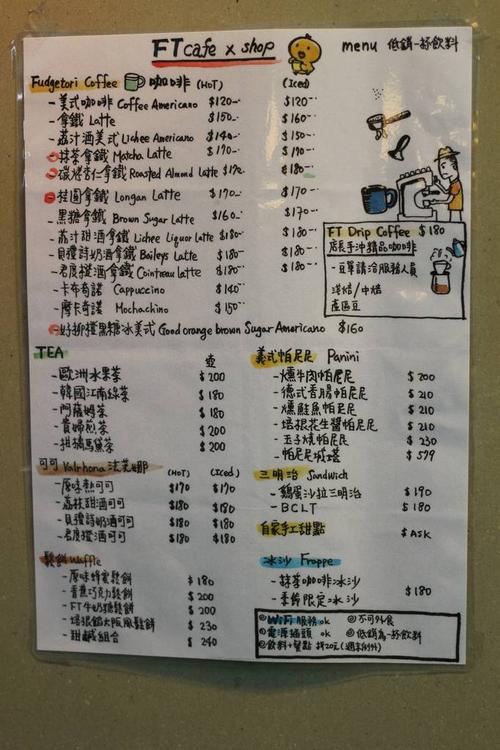 FT cafe x shop
menu 低銷一杯飲料
Fudgetori Coffee 咖啡 (HOT) (Iced)
-美式咖啡 Coffee Americano $120 $120
-拿鐵 Latte $150 $160
-荔汁酒美式 Lichee Americano $140 $150
-抹茶拿鐵 Matcha Latte $170 $190
-碳烤杏仁拿鐵 Roasted Almond Latte $180
-桂圓拿鐵 Longan Latte $170 $170
-黑糖拿鐵 Brown Sugar Latte $160 $170
-荔汁甜酒拿鐵 Lichee Liquor Latte $180 $180
-貝禮詩奶酒拿鐵 Baileys Latte $180 $180
-君度橙酒拿鐵 Cointreau Latte $180 $180
-卡布奇諾 Cappuccino $140
-摩卡奇諾 Mochachino $150
-好柳橙黑糖冰美式 Good orange brown Sugar Americano $160
FT Drip Coffee $180
店長手沖精品咖啡
-豆單請洽服務人員
淺焙/中焙
產區豆
TEA 壺
-歐洲水果茶 $200
-韓國江南綠茶 $180
-阿薩姆茶 $180
-貴婦煎茶 $200
-柑橘馬黛茶 $200
可可 Valrhona 法芙娜 (HOT) (Iced)
-原味熱可可 $170 $170
-荔枝甜酒可可 $180 $180
-貝禮詩奶酒可可 $180 $180
-君度橙酒可可 $180 $180
鬆餅 Waffle
-原味蜂蜜鬆餅 $180
-香蕉巧克力鬆餅 $200
-FT牛奶糖鬆餅 $200
-培根鍋大阪風鬆餅 $230
-甜鹹組合 $240
義式帕尼尼 Panini
-燻牛肉帕尼尼 $200
-德式香腸帕尼尼 $210
-燻鮭魚帕尼尼 $210
-培根花生醬帕尼尼 $210
-玉子燒帕尼尼 $230
-帕尼尼城塔 $579
三明治 Sandwich
-雞蛋沙拉三明治 $190
-BCLT $180
自家手工甜點 $ASK
冰沙 Frappe
-抹茶咖啡冰沙
-季節限定冰沙 $180
◎WiFi服務ok ◎不可外食
◎電源插頭 ok ◎低銷為一杯飲料
◎飲料+餐點 折20元(週末例外)